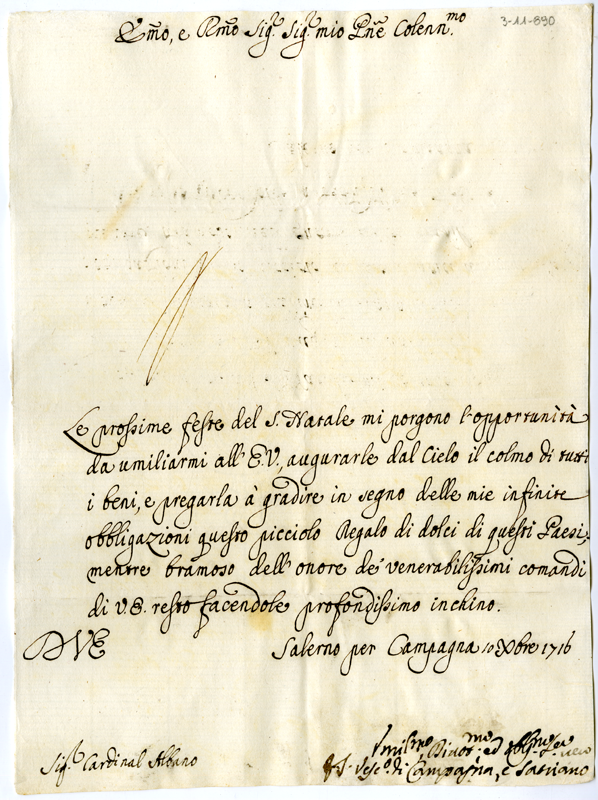 3-11-890
Em̃o, e Rm̃o Sig.r Sig.r mio Pñe Colenn.mo
Le prossime feste del S. Natale mi porgono l'opportunità
da umiliarmi all' E.V., augurarle dal Cielo il colmo di tutti
i beni, e pregarla à gradire in segno delle mie infinite
obbligazioni questo picciolo Regalo di dolci di questi Paesi,
mentre bramoso dell' onore de' venerabilissimi comandi
di V.E. resto facendole profondissimo inchino.
D V E
Salerno per Campagna 10 Xbre 1716
Umil.mo, Divot.mo ed obl.mo Ser
vero
Vesc.o di Campagna, e Satriano
Sig.r Cardinal Albano